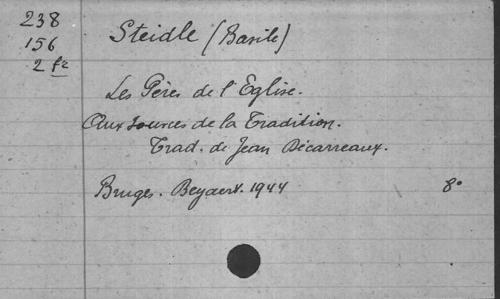 238
156
2 fc
Steidle (Basile)
Les Pères de l'Eglise.
Aux sources de la Tradition.
Trad. de Jean Décarreaux.
Bruges. Beyaert. 1944 8°